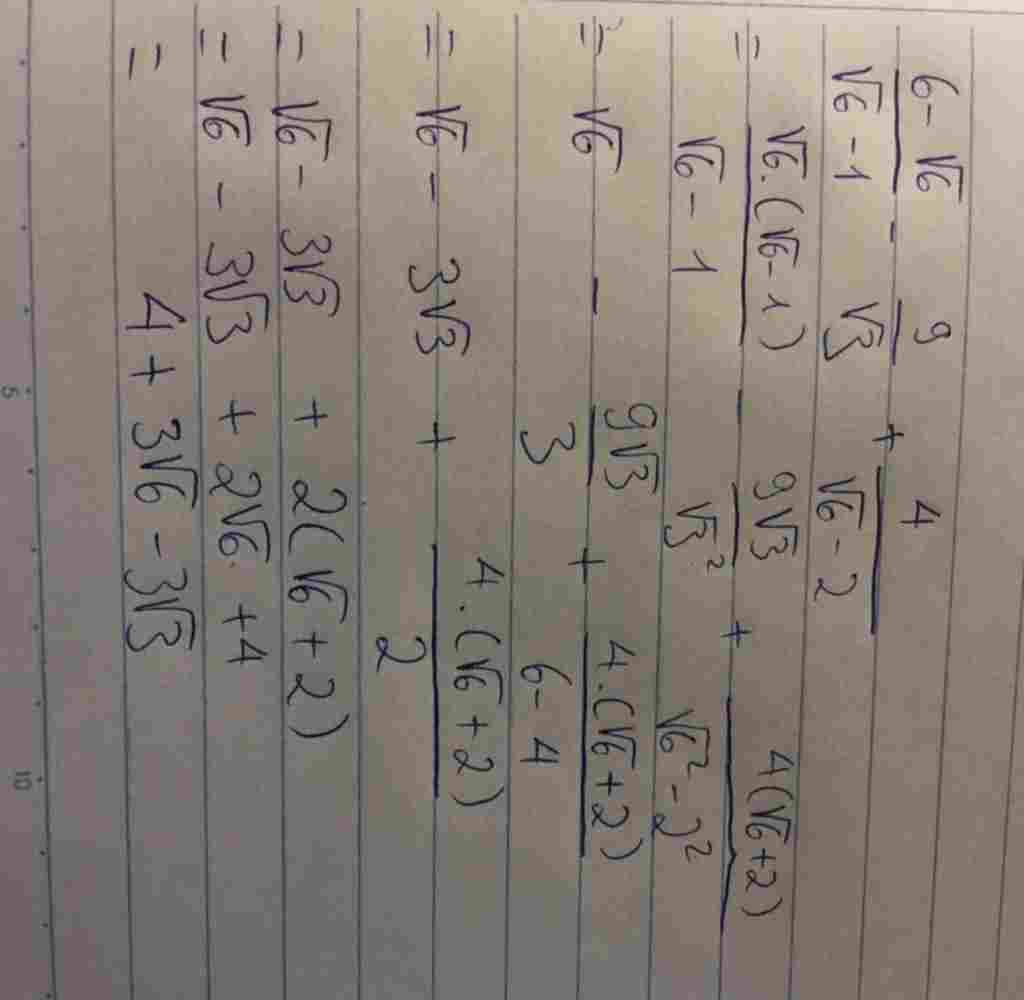 6-√6 / √6-1 - 9 / √3 + 4 / √6-2
= √6.(√6-1) / √6-1 - 9√3 / √3² + 4(√6+2) / √6²-2²
= √6 - 9√3 / 3 + 4.(√6+2) / 6-4
= √6 - 3√3 + 4.(√6+2) / 2
= √6 - 3√3 + 2(√6+2)
= √6 - 3√3 + 2√6 +4
= 4+3√6-3√3
5
10